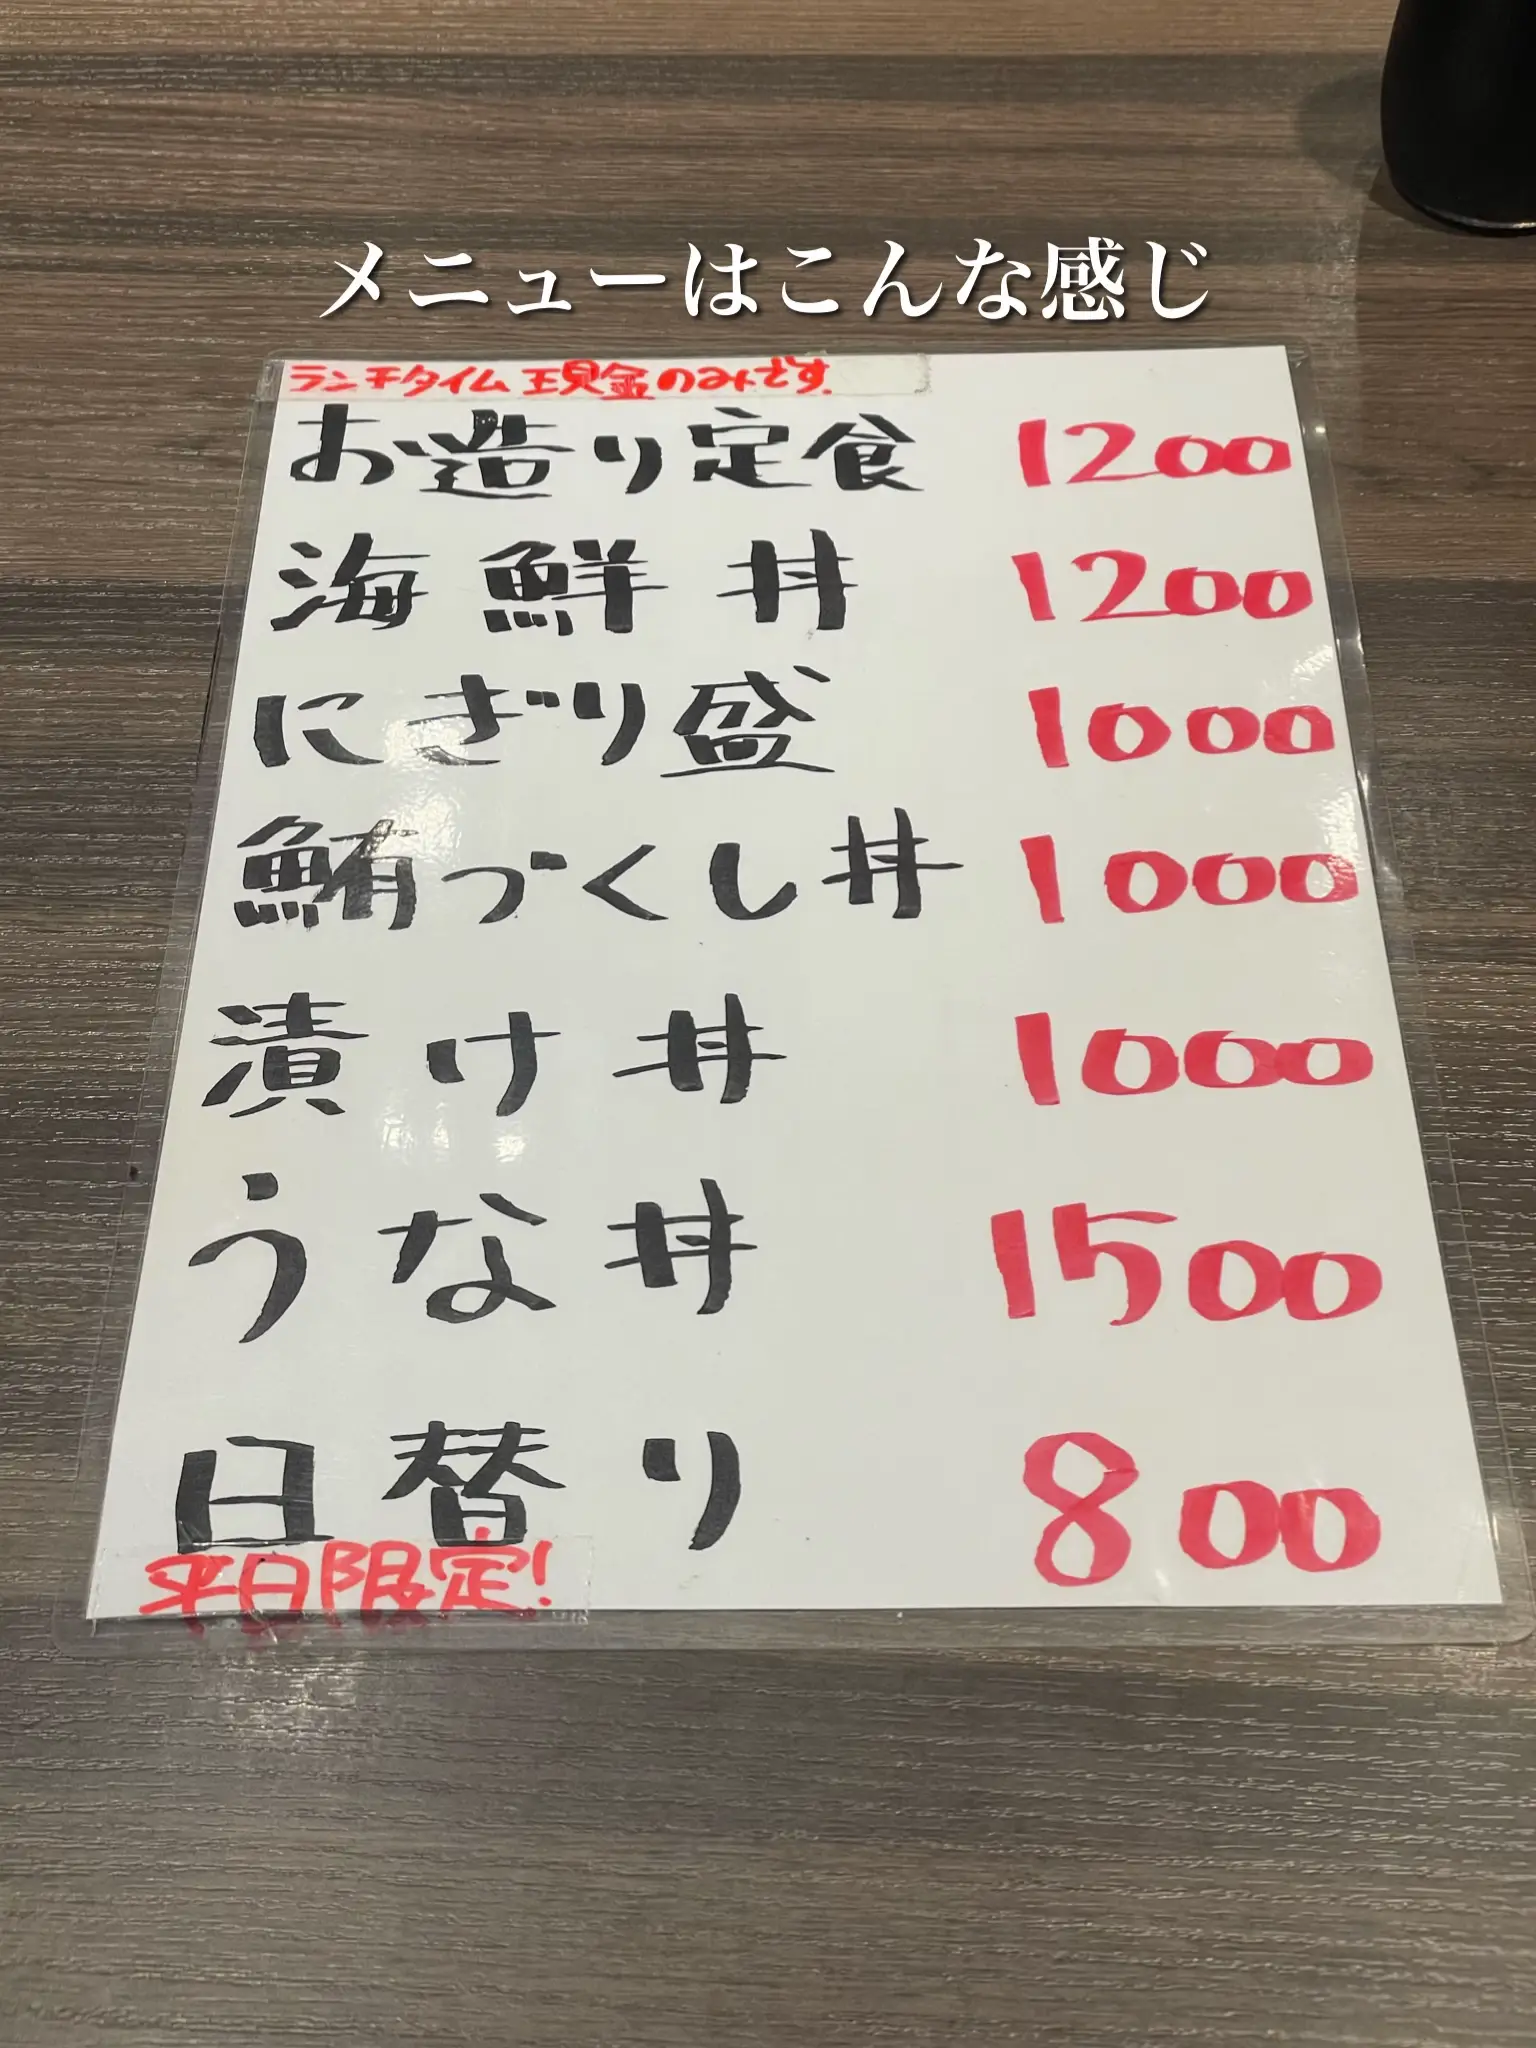 メニューはこんな感じ
ランチタイム 現金のみです.
お造り定食 1200
海鮮丼 1200
にぎり盛 1000
鮪づくし丼 1000
漬け丼 1000
うな丼 1500
日替り 800
平日限定!